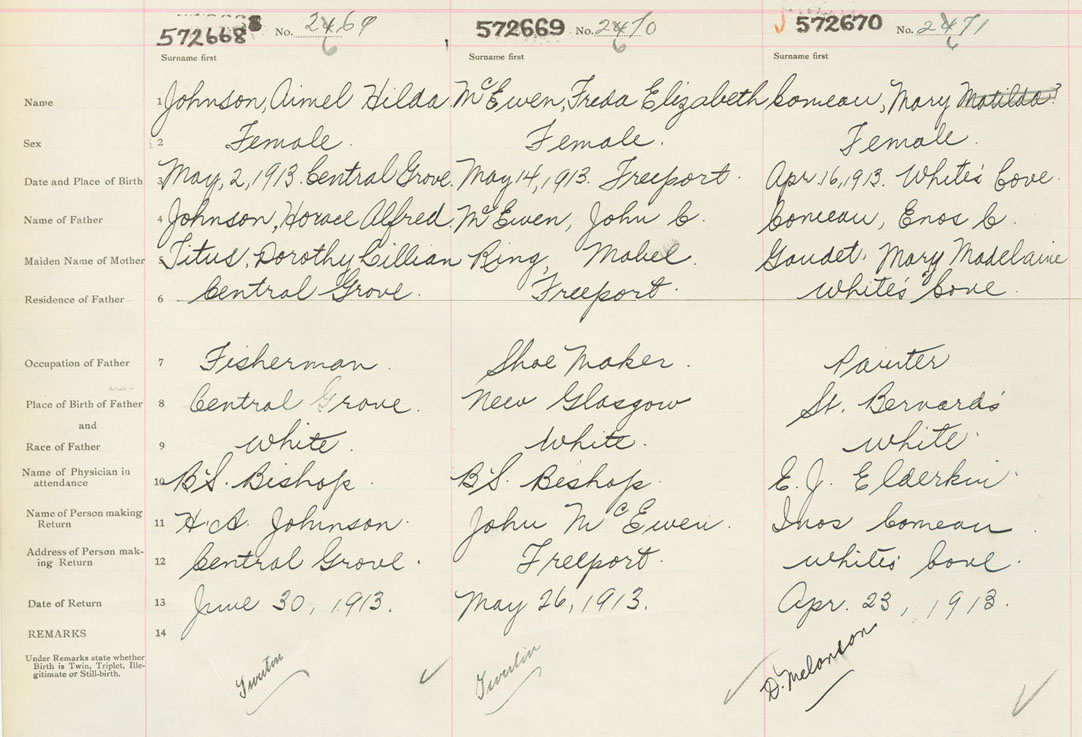 572668 8 No. 2469 6 572669 No. 2470 6 572670 No. 2471 6
Surname first Surname first Surname first
Name 1 Johnson, Aimel Hilda McEwen, Freda Elizabeth Comeau, Mary Matilda?
Sex 2 Female. Female. Female.
Date and Place of Birth 3 May, 2, 1913. Central Grove. May 14, 1913. Freeport. Apr. 16, 1913. White's Cove.
Name of Father 4 Johnson, Horace Alfred. McEwen, John C. Comeau, Enos C.
Maiden Name of Mother 5 Titus, Dorothy Lillian Ring, Mabel. Gaudet, Mary Madelaine
Residence of Father 6 Central Grove. Freeport. White's Cove.
Occupation of Father 7 Fisherman. Shoe Maker. Painter
Place of Birth of Father 8 Central Grove. New Glasgow St. Bernard's
and
Race of Father 9 White. White. White.
Name of Physician in attendance 10 B.S. Bishop. B.S. Bishop. E. J. Elderkin.
Name of Person making Return 11 H. A. Johnson. John McEwen. Inos Comeau
Address of Person making Return 12 Central Grove. Freeport. White's Cove.
Date of Return 13 June 30, 1913. May 26, 1913. Apr. 23, 1913.
REMARKS 14
Under Remarks state whether
Birth is Twin, Triplet, Ille-
gitimate or Still-birth.
D. Melanson